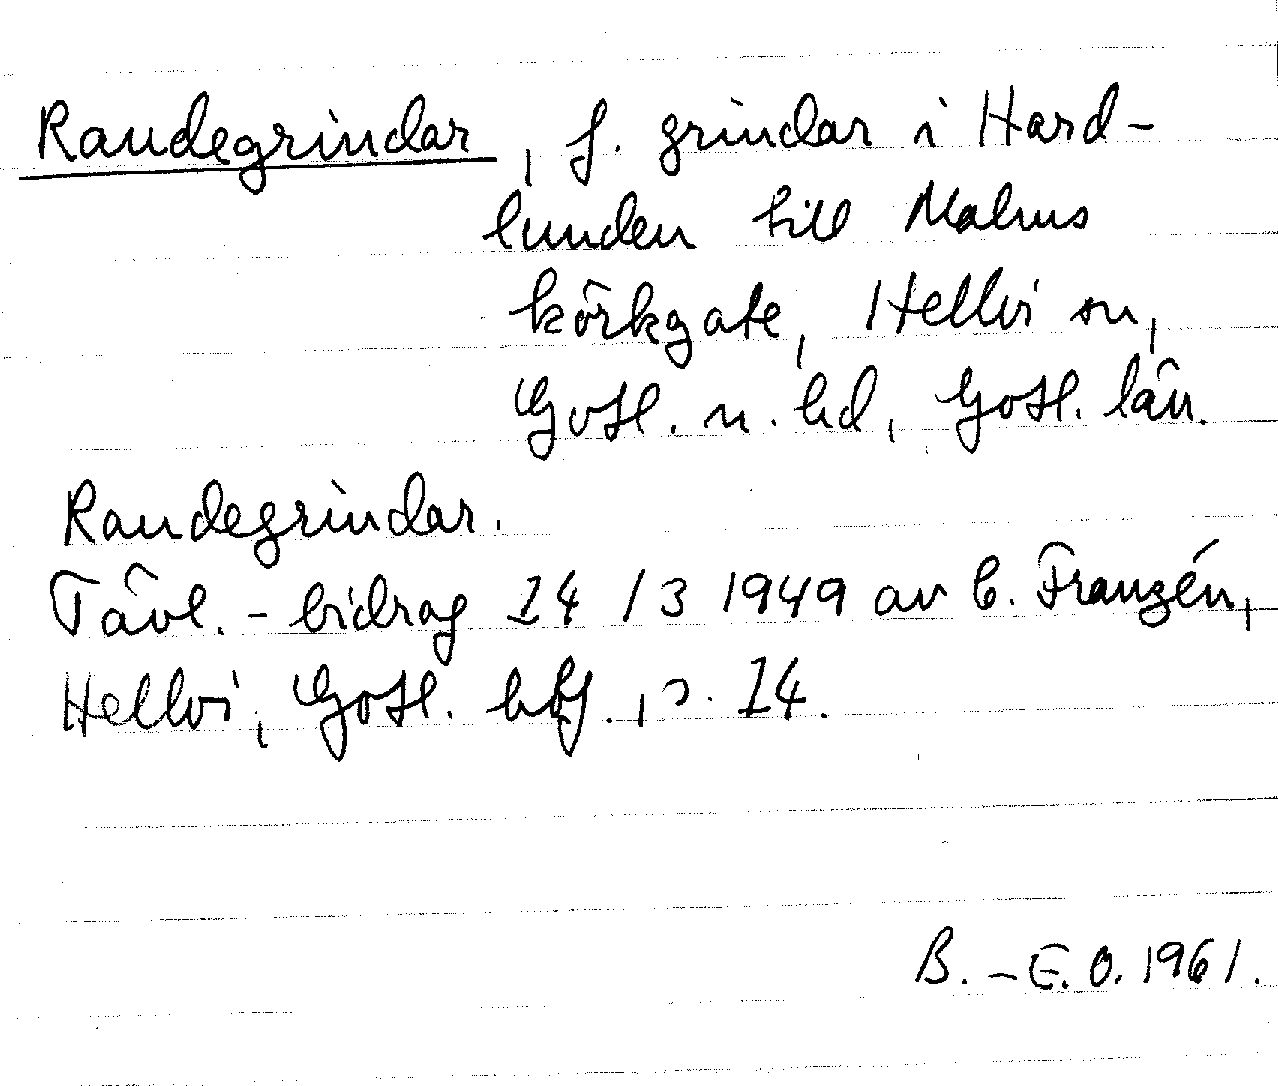 Raudegrindar, f. grindar i Hard-
lunden till Malms
körkgate, Hellvi sn,
Gotl. n. hd, Gotl. län.
Raudegrindar.
Tävl.-bidrag 24/3 1949 av C. Franzén,
Hellvi, Gotl. hbf., s. 24.
B.-E. O. 1961.